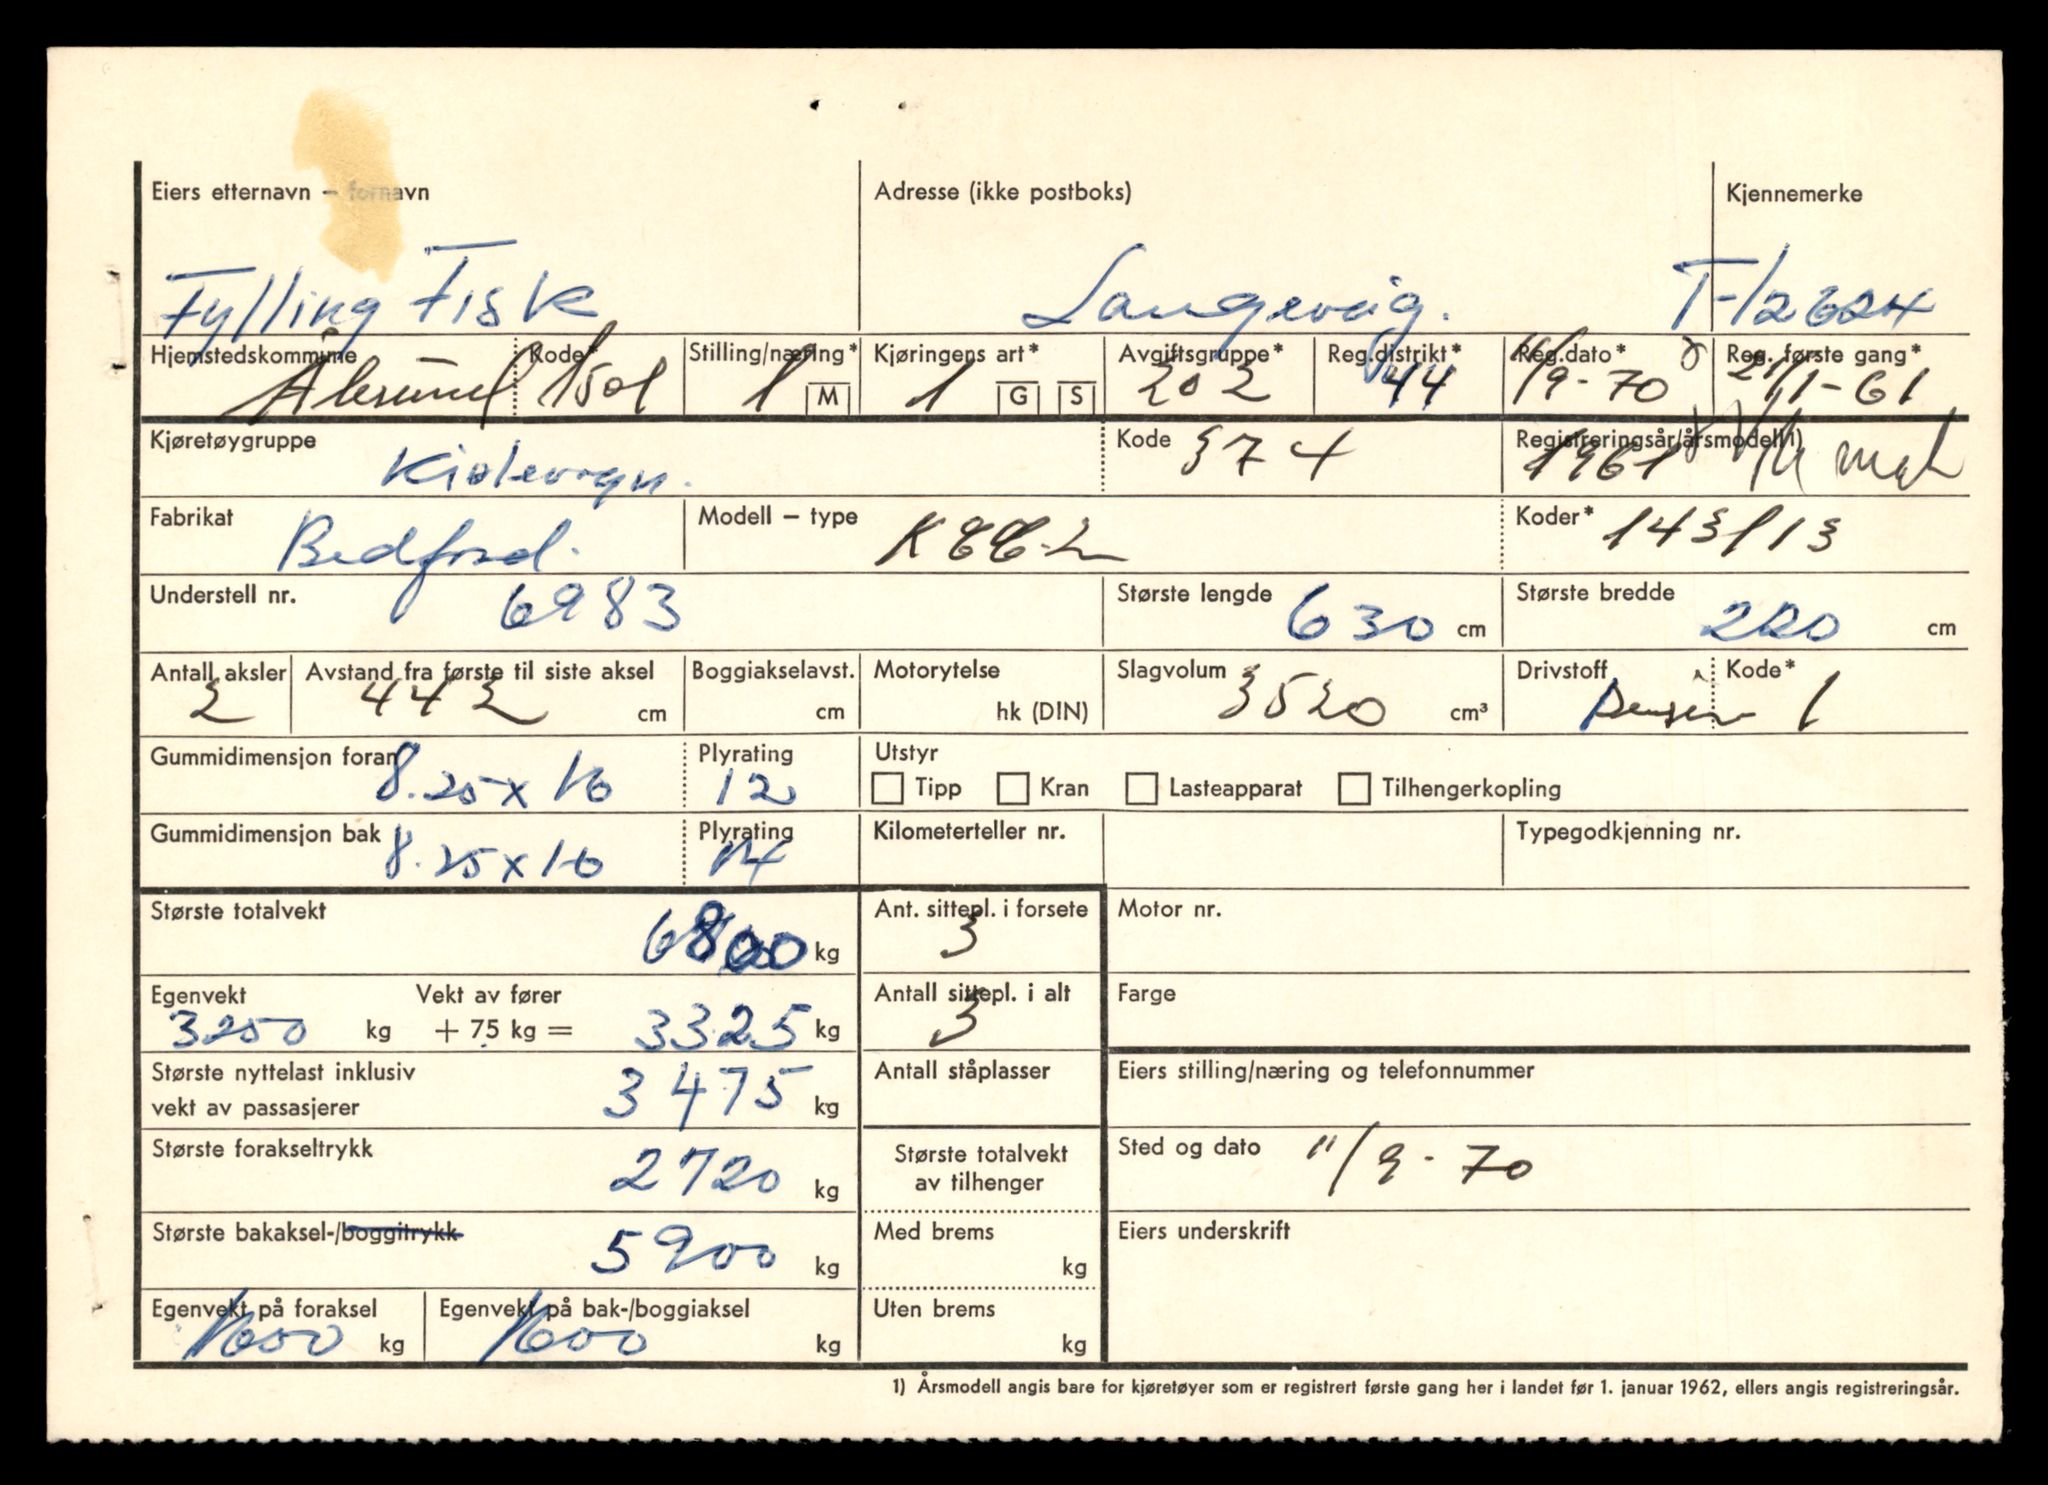 Eiers etternavn – fornavn Adresse (ikke postboks) Kjennemerke
Fylling Fisk Langevåg. T-12624
Hjemstedskommune Kode* Stilling/næring* Kjøringens art* Avgiftsgruppe* Reg.distrikt* Reg.dato* Reg. første gang*
Ålesund 1501 1 M 1 G S 202 44 11/9-70 21/1-61
Kjøretøygruppe Kode Registreringsår/årsmodell 1)
Kjølevogn. 374 1961
Fabrikat Modell – type Koder*
Bedford. 143113
Understell nr. Største lengde Største bredde
6983 630 cm 220 cm
Antall aksler Avstand fra første til siste aksel Boggiakselavst. Motorytelse Slagvolum Drivstoff Kode*
2 442 cm cm hk (DIN) 3520 cm³ Bensin 1
Gummidimensjon foran Plyrating Utstyr
8.25 x 16 12 Tipp Kran Lasteapparat Tilhengerkopling
Gummidimensjon bak Plyrating Kilometerteller nr. Typegodkjenning nr.
8.25 x 16 14
Største totalvekt Ant. sittepl. i forsete Motor nr.
6800 kg 3
Egenvekt Vekt av fører Antall sittepl. i alt Farge
3250 kg + 75 kg = 3325 kg 3
Største nyttelast inklusiv Antall ståplasser Eiers stilling/næring og telefonnummer
vekt av passasjerer 3475 kg
Største forakseltrykk Største totalvekt Sted og dato 11/9-70
2720 kg av tilhenger
Største bakaksel-/boggitrykk Med brems Eiers underskrift
5900 kg kg
Egenvekt på foraksel Egenvekt på bak-/boggiaksel Uten brems
1600 kg 1600 kg kg
1) Årsmodell angis bare for kjøretøyer som er registrert første gang her i landet før 1. januar 1962, ellers angis registreringsår.